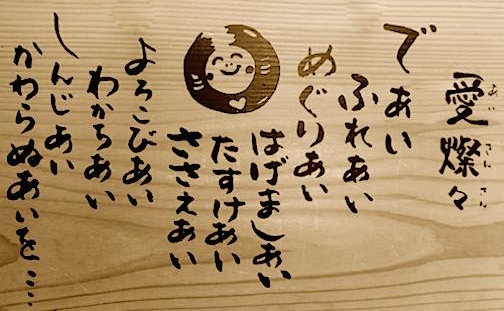 愛燦々
あいさんさん
であい
ふれあい
めぐりあい
はげましあい
たすけあい
ささえあい
よろこびあい
わかちあい
しんじあい
かわらぬあいを…